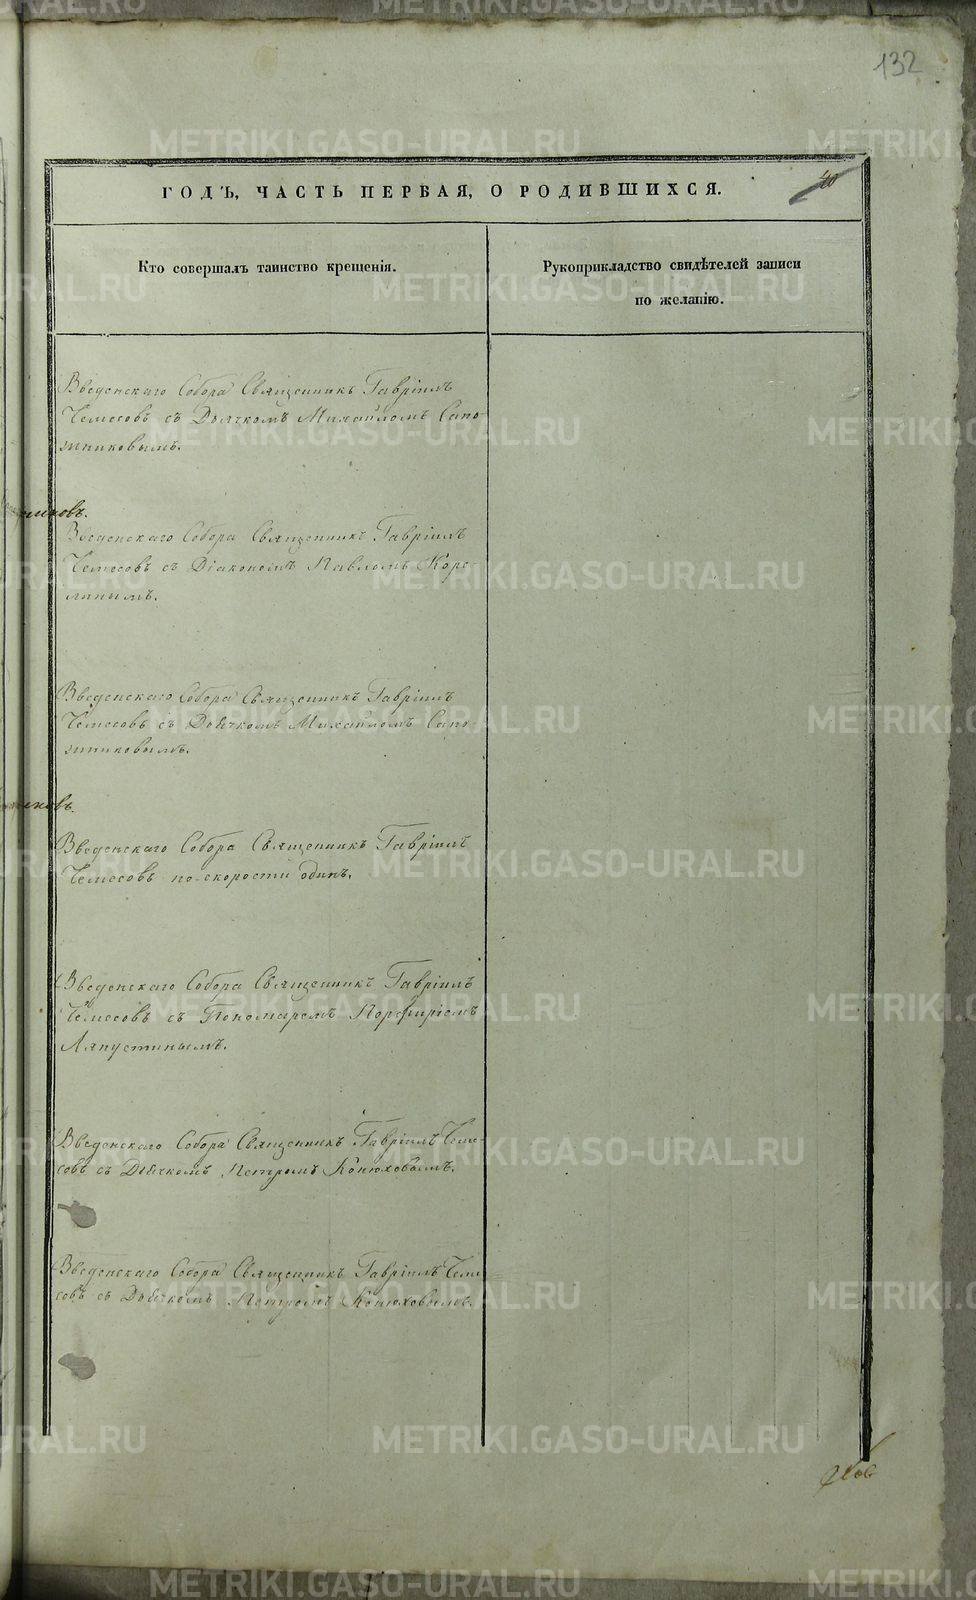 132
ГОДЪ, ЧАСТЬ ПЕРВАЯ, О РОДИВШИХСЯ.
40
Кто совершалъ таинство крещенія.
Рукоприкладство свидѣтелей записи
по желанію.
Введенскаго Собора Священникъ Гавріилъ
Чемесовъ съ Дьячкомъ Михаиломъ Сапо
жниковымъ.
никовъ.
Введенскаго Собора Священникъ Гавріилъ
Чемесовъ съ Діакономъ Павломъ Коре-
линымъ.
Введенскаго Собора Священникъ Гавріилъ
Чемесовъ съ Дьячкомъ Михаиломъ Сапо-
жниковымъ.
никовъ.
Введенскаго Собора Священникъ Гавріилъ
Чемесовъ по скорости одинъ.
Введенскаго Собора Священникъ Гавріилъ
Чемесовъ съ Пономаремъ Порфиріемъ
Ляпустинымъ.
Введенскаго Собора Священникъ Гавріилъ Чеме
совъ съ Дьячкомъ Петромъ Конюховымъ.
Введенскаго Собора Священникъ Гавріилъ Чеме
совъ съ Дьячкомъ Петромъ Конюховымъ.
METRIKI.GASO-URAL.RU